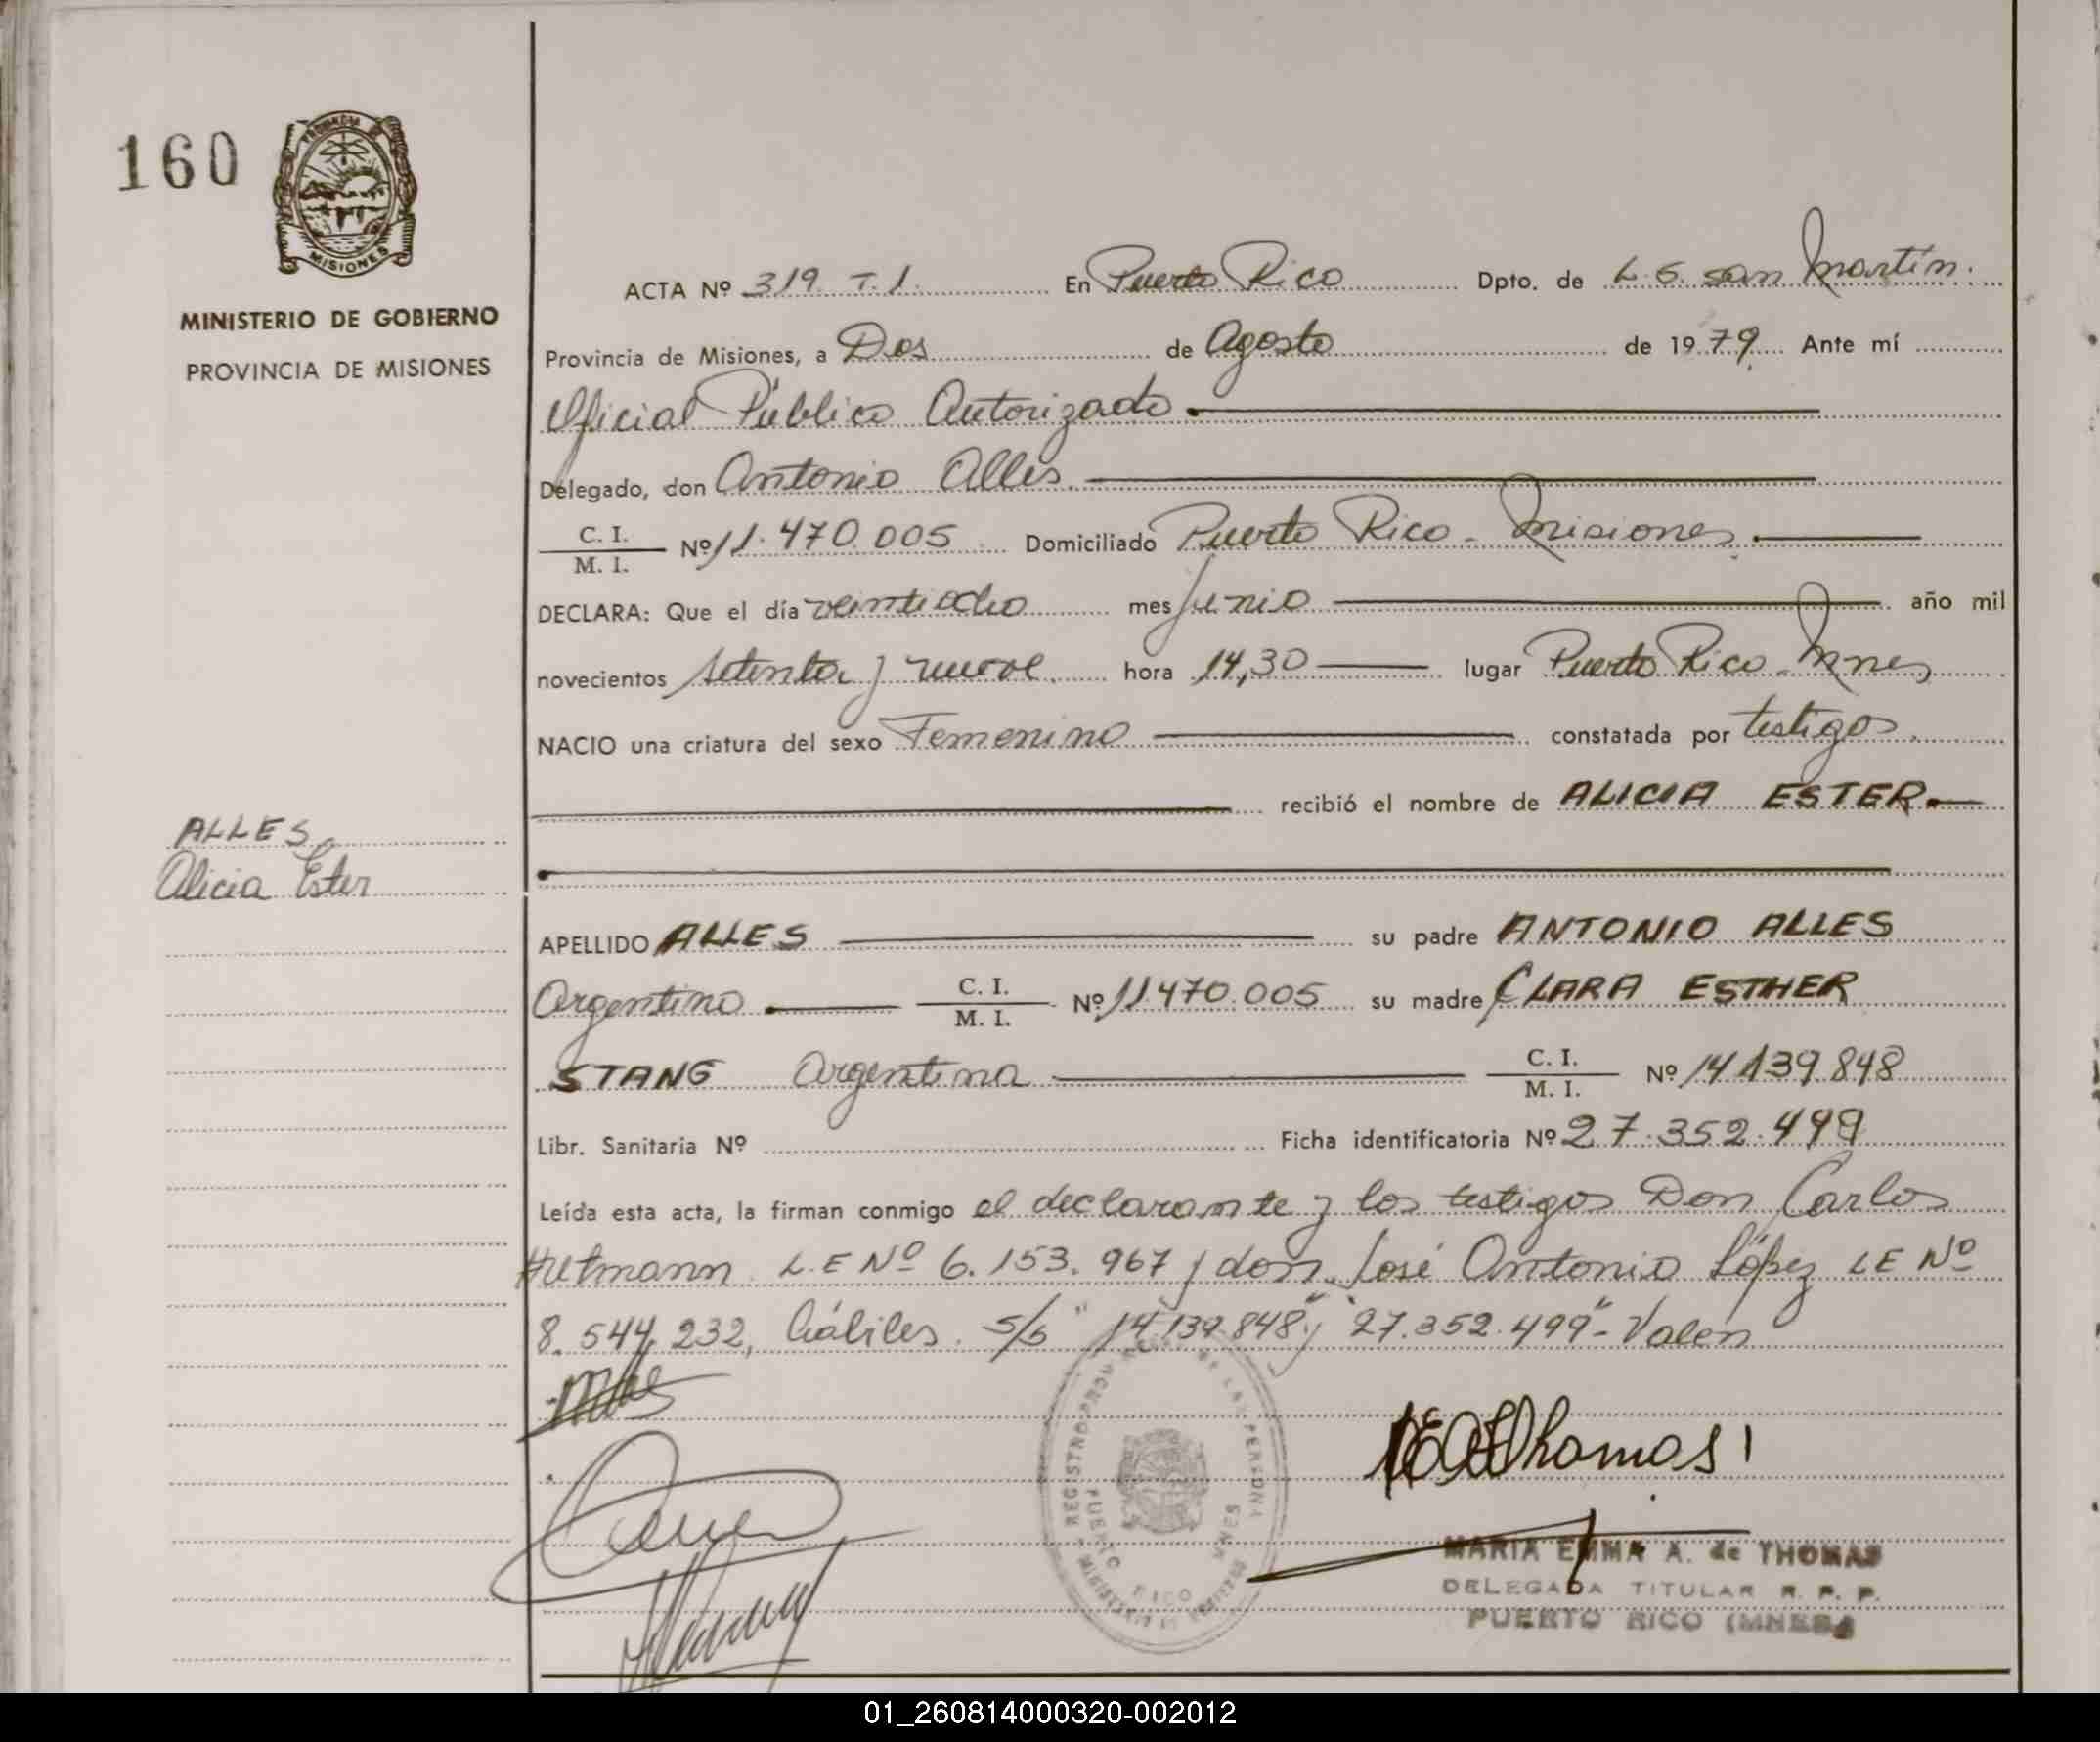 160
PROVINCIA DE
MISIONES
MINISTERIO DE GOBIERNO
PROVINCIA DE MISIONES
ACTA Nº 319 T.1. En Puerto Rico Dpto. de L.G. San Martín.
Provincia de Misiones, a Dos de Agosto de 1979. Ante mí
Oficial Público Autorizado
Delegado, don Antonio Alles
C. I.
M. I. Nº 11.470.005 Domiciliado Puerto Rico - Misiones
DECLARA: Que el día veintiocho mes Junio año mil
novecientos setenta y nueve. hora 14,30 lugar Puerto Rico - Mnes
NACIO una criatura del sexo Femenino constatada por testigos.
recibió el nombre de ALICIA ESTER.
ALLES
Alicia Ester
APELLIDO ALLES su padre ANTONIO ALLES
Argentino C. I.
M. I. Nº 11.470.005 su madre CLARA ESTHER
STANG Argentina C. I.
M. I. Nº 14.139.848
Libr. Sanitaria Nº Ficha identificatoria Nº 27.352.499
Leída esta acta, la firman conmigo el declarante y los testigos Don Carlos
L.E Nº 6.153.967 y don José Antonio López LE Nº
8.544.232, hábiles. S/b "14.139.848" y "27.352.499" - Valen
Thomas
MARIA EMMA A. de THOMAS
DELEGADA TITULAR R. P. P.
PUERTO RICO (MNES)
REGISTRO PROV. DE LAS PERSONAS
PUERTO RICO MISIONES
MINISTERIO DE GOBIERNO
01_260814000320-002012